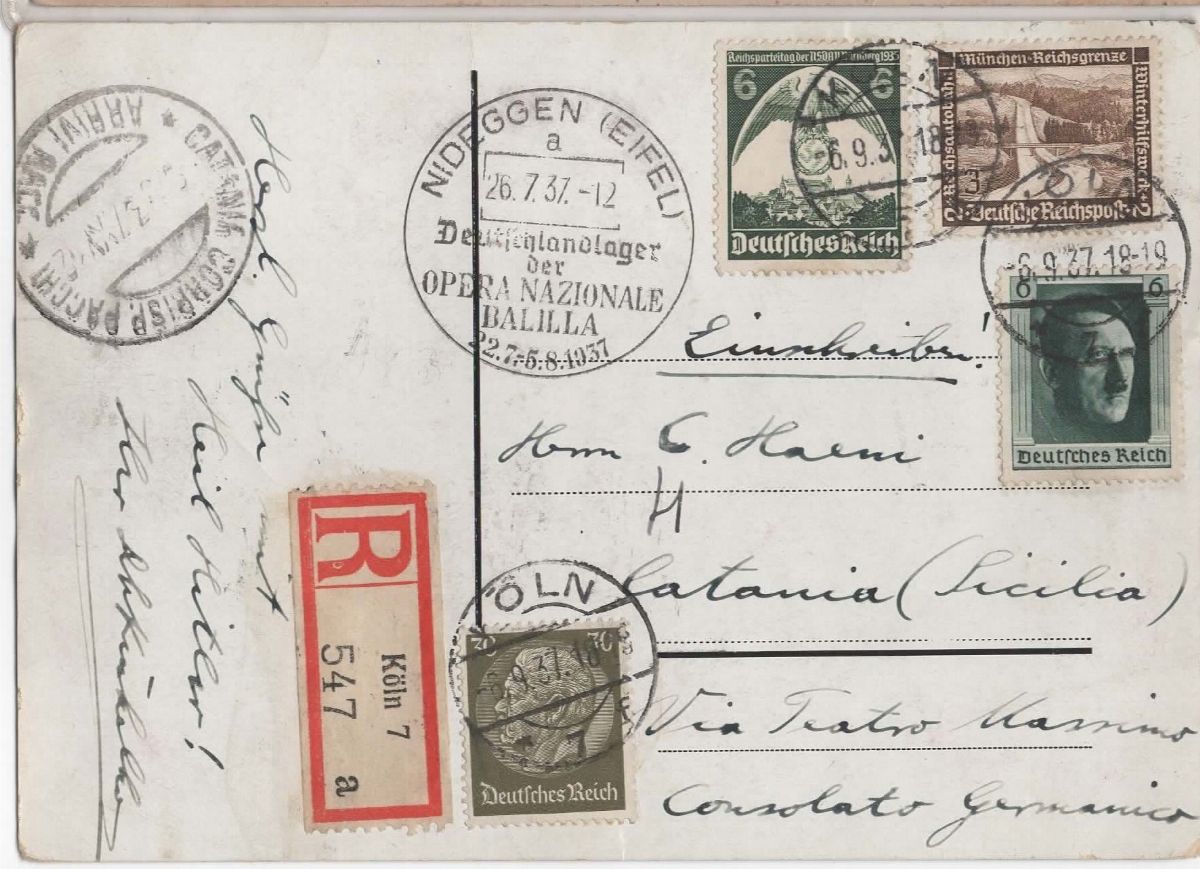 Herzl. Grüße mit
Heil Hitler!
Ihr
CATANIA CORRISP. PACCHI
ARRIVI RACC.
NIDEGGEN (EIFEL)
a
26.7.37.-12
Deutschlandlager
der
OPERA NAZIONALE
BALILLA
22.7.-5.8.1937
Reichsparteitag der NSDAP Nürnberg 1935
6 6
Deutsches Reich
München-Reichsgrenze
Reichsautobahn
Winterhilfswerk
3
2 Deutsche Reichspost 2
6.9.37.18
KÖLN
6.9.37.18-19
7
6 6
Deutsches Reich
Einschreiben!
Herrn C. Haeni
H
Catania (Sicilia)
Via Teatro Massimo
Consolato Germanico
R
Köln 7
547 a
KÖLN
6.9.37.18
7
30 30
Deutsches Reich